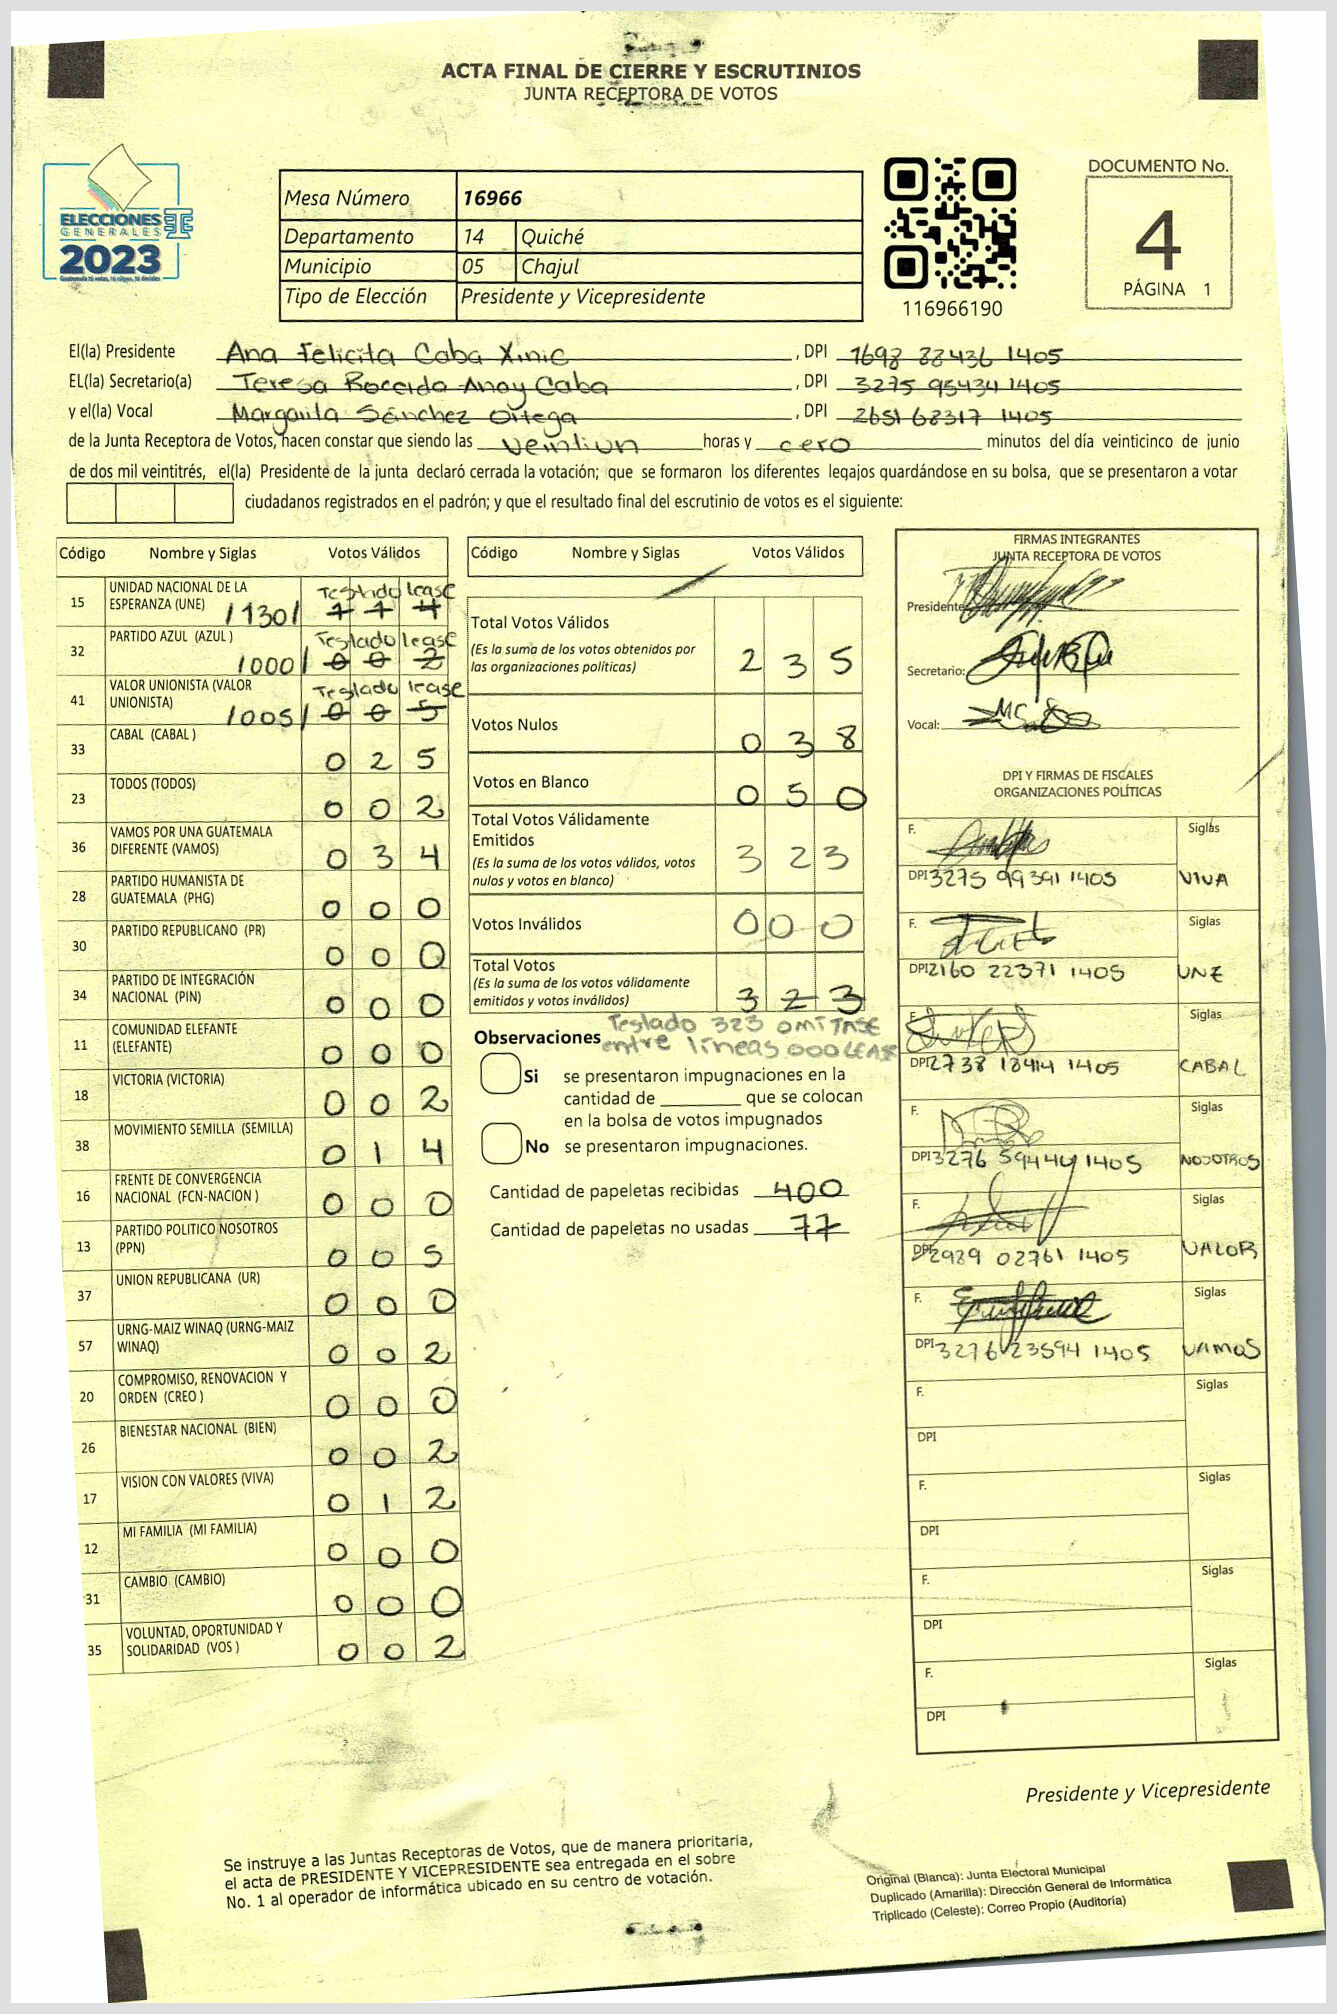 ACTA FINAL DE CIERRE Y ESCRUTINIOS
JUNTA RECEPTORA DE VOTOS
ELECCIONES
GENERALES
2023
Mesa Número 16966
Departamento 14 Quiché
Municipio 05 Chajul
Tipo de Elección Presidente y Vicepresidente
116966190
DOCUMENTO No.
4
PÁGINA 1
El(la) Presidente Ana Felicita Caba Xinic , DPI 1698 88436 1405
EL(la) Secretario(a) Teresa Anay Caba , DPI 3275 95434 1405
y el(la) Vocal Margarita Sánchez Ortega , DPI 2651 68317 1405
de la Junta Receptora de Votos, hacen constar que siendo las veintiun horas y cero minutos del día veinticinco de junio
de dos mil veintitrés, el(la) Presidente de la junta declaró cerrada la votación; que se formaron los diferentes legajos quardándose en su bolsa, que se presentaron a votar
ciudadanos registrados en el padrón; y que el resultado final del escrutinio de votos es el siguiente:
Código Nombre y Siglas Votos Válidos
15 UNIDAD NACIONAL DE LA ESPERANZA (UNE) /130/ Testado lease
32 PARTIDO AZUL (AZUL ) /000/ Testado lease 0 0 2
41 VALOR UNIONISTA (VALOR UNIONISTA) /005/ Testado lease 0 0 5
33 CABAL (CABAL ) 0 2 5
23 TODOS (TODOS) 0 0 2
36 VAMOS POR UNA GUATEMALA DIFERENTE (VAMOS) 0 3 4
28 PARTIDO HUMANISTA DE GUATEMALA (PHG) 0 0 0
30 PARTIDO REPUBLICANO (PR) 0 0 0
34 PARTIDO DE INTEGRACIÓN NACIONAL (PIN) 0 0 0
11 COMUNIDAD ELEFANTE (ELEFANTE) 0 0 0
18 VICTORIA (VICTORIA) 0 0 2
38 MOVIMIENTO SEMILLA (SEMILLA) 0 1 4
16 FRENTE DE CONVERGENCIA NACIONAL (FCN-NACION ) 0 0 0
13 PARTIDO POLITICO NOSOTROS (PPN) 0 0 5
37 UNION REPUBLICANA (UR) 0 0 0
57 URNG-MAIZ WINAQ (URNG-MAIZ WINAQ) 0 0 2
20 COMPROMISO, RENOVACION Y ORDEN (CREO ) 0 0 0
26 BIENESTAR NACIONAL (BIEN) 0 0 2
17 VISION CON VALORES (VIVA) 0 1 2
12 MI FAMILIA (MI FAMILIA) 0 0 0
31 CAMBIO (CAMBIO) 0 0 0
35 VOLUNTAD, OPORTUNIDAD Y SOLIDARIDAD (VOS ) 0 0 2
Código Nombre y Siglas Votos Válidos
Total Votos Válidos
(Es la suma de los votos obtenidos por
las organizaciones políticas) 2 3 5
Votos Nulos 0 3 8
Votos en Blanco 0 5 0
Total Votos Válidamente
Emitidos
(Es la suma de los votos válidos, votos
nulos y votos en blanco) 3 2 3
Votos Inválidos 0 0 0
Total Votos
(Es la suma de los votos válidamente
emitidos y votos inválidos) 3 2 3
Observaciones Testado 323 OMITASE
entre lineas 000 LEASE
Si se presentaron impugnaciones en la
cantidad de ________ que se colocan
en la bolsa de votos impugnados
No se presentaron impugnaciones.
Cantidad de papeletas recibidas 400
Cantidad de papeletas no usadas 77
FIRMAS INTEGRANTES
JUNTA RECEPTORA DE VOTOS
Presidente:
Secretario:
Vocal:
DPI Y FIRMAS DE FISCALES
ORGANIZACIONES POLÍTICAS
F. Siglas
DPI 3275 99391 1405 VIVA
F. Siglas
DPI 2160 22371 1405 UNE
F. Siglas
DPI 2738 18414 1405 CABAL
F. Siglas
DPI 3276 59444 1405 NOSOTROS
F. Siglas
DPI 2929 02761 1405 VALOR
F. Siglas
DPI 3276 23594 1405 VAMOS
F. Siglas
DPI
F. Siglas
DPI
F. Siglas
DPI
F. Siglas
DPI
Presidente y Vicepresidente
Se instruye a las Juntas Receptoras de Votos, que de manera prioritaria,
el acta de PRESIDENTE Y VICEPRESIDENTE sea entregada en el sobre
No. 1 al operador de informática ubicado en su centro de votación.
Original (Blanca): Junta Electoral Municipal
Duplicado (Amarilla): Dirección General de Informática
Triplicado (Celeste): Correo Propio (Auditoría)